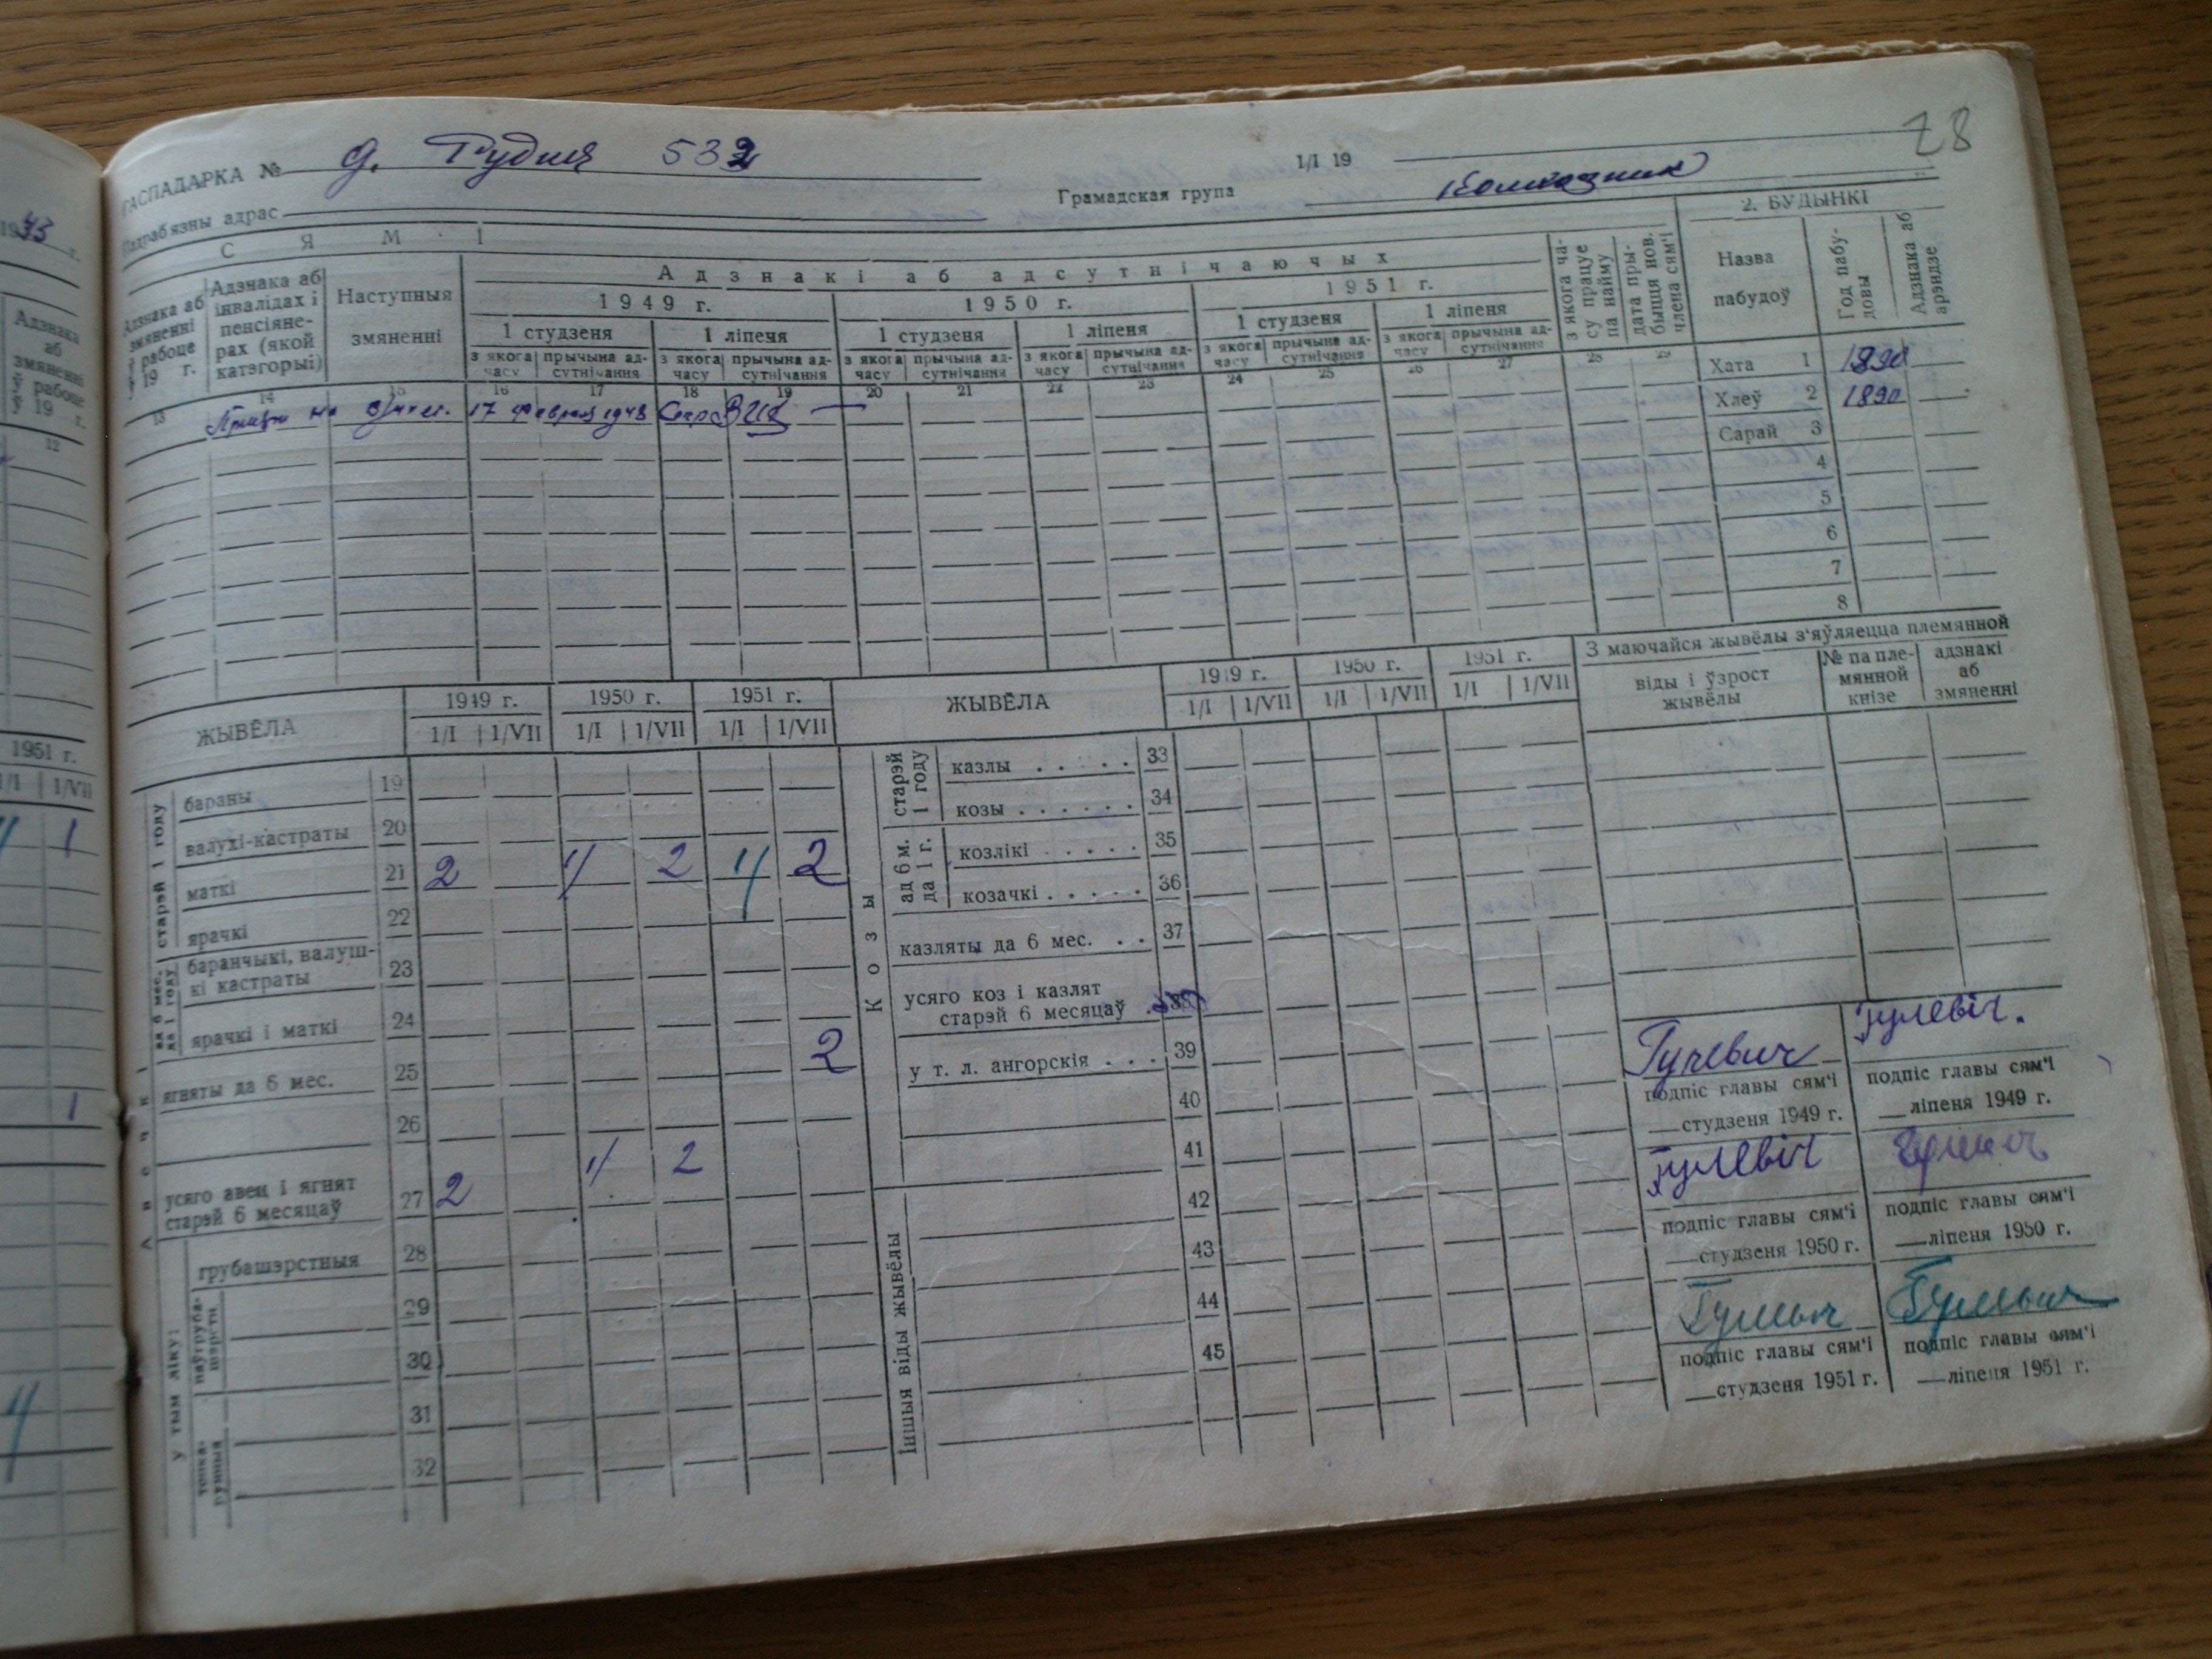 28
ГАСПАДАРКА № д. Рудня 532
1/I 19
Падрабязны адрас
Грамадская група колхозник
С Я М ' І
2. БУДЫНКІ
Адзнака аб змяненні ў рабоце ў 19 г.
Адзнака аб інвалідах і пенсіянерах (якой катэгорыі)
Наступныя змяненні
Адзнакі аб адсутнічаючых
з якога часу працуе па найму
дата прыбыцця нов. члена сям'і
Назва пабудоў
Год пабудовы
Адзнака аб арэндзе
1949 г. 1950 г. 1951 г.
1 студзеня 1 ліпеня 1 студзеня 1 ліпеня 1 студзеня 1 ліпеня
з якога часу прычына адсутнічання з якога часу прычына адсутнічання з якога часу прычына адсутнічання з якога часу прычына адсутнічання з якога часу прычына адсутнічання з якога часу прычына адсутнічання
13 14 15 16 17 18 19 20 21 22 23 24 25 26 27 28 29
на 17 1948
Хата 1 1890
Хлеў 2 1890
Сарай 3
4
5
6
7
8
ЖЫВЁЛА
1949 г. 1950 г. 1951 г.
1/I 1/VII 1/I 1/VII 1/I 1/VII
старэй 1 году
бараны 19
валухі-кастраты 20
маткі 21 2 4 2 4 2
ярачкі 22
ад 6 мес. да 1 году
баранчыкі, валушкі кастраты 23
ярачкі і маткі 24
ягняты да 6 мес. 25 2
26
усяго авец і ягнят старэй 6 месяцаў 27 2 4 2
у тым ліку:
грубашэрстныя 28
29
30
31
32
ЖЫВЁЛА
1949 г. 1950 г. 1951 г.
1/I 1/VII 1/I 1/VII 1/I 1/VII
Козы
старэй 1 году
казлы . . . . . 33
козы . . . . . . 34
ад 6 м. да 1 г.
козлікі . . . . . 35
козачкі . . . . . 36
казляты да 6 мес. . . 37
усяго коз і казлят
старэй 6 месяцаў . 38
у т. л. ангорскія . . . 39
40
41
Іншыя віды жывёлы
42
43
44
45
З маючайся жывёлы з'яўляецца племянной
віды і ўзрост жывёлы
№ па племянной кнізе
адзнакі аб змяненні
Гулевич Гулевіч.
подпіс главы сям'і подпіс главы сям'і
студзеня 1949 г. ліпеня 1949 г.
Гулевіч
подпіс главы сям'і подпіс главы сям'і
студзеня 1950 г. ліпеня 1950 г.
подпіс главы сям'і подпіс главы сям'і
студзеня 1951 г. ліпеня 1951 г.